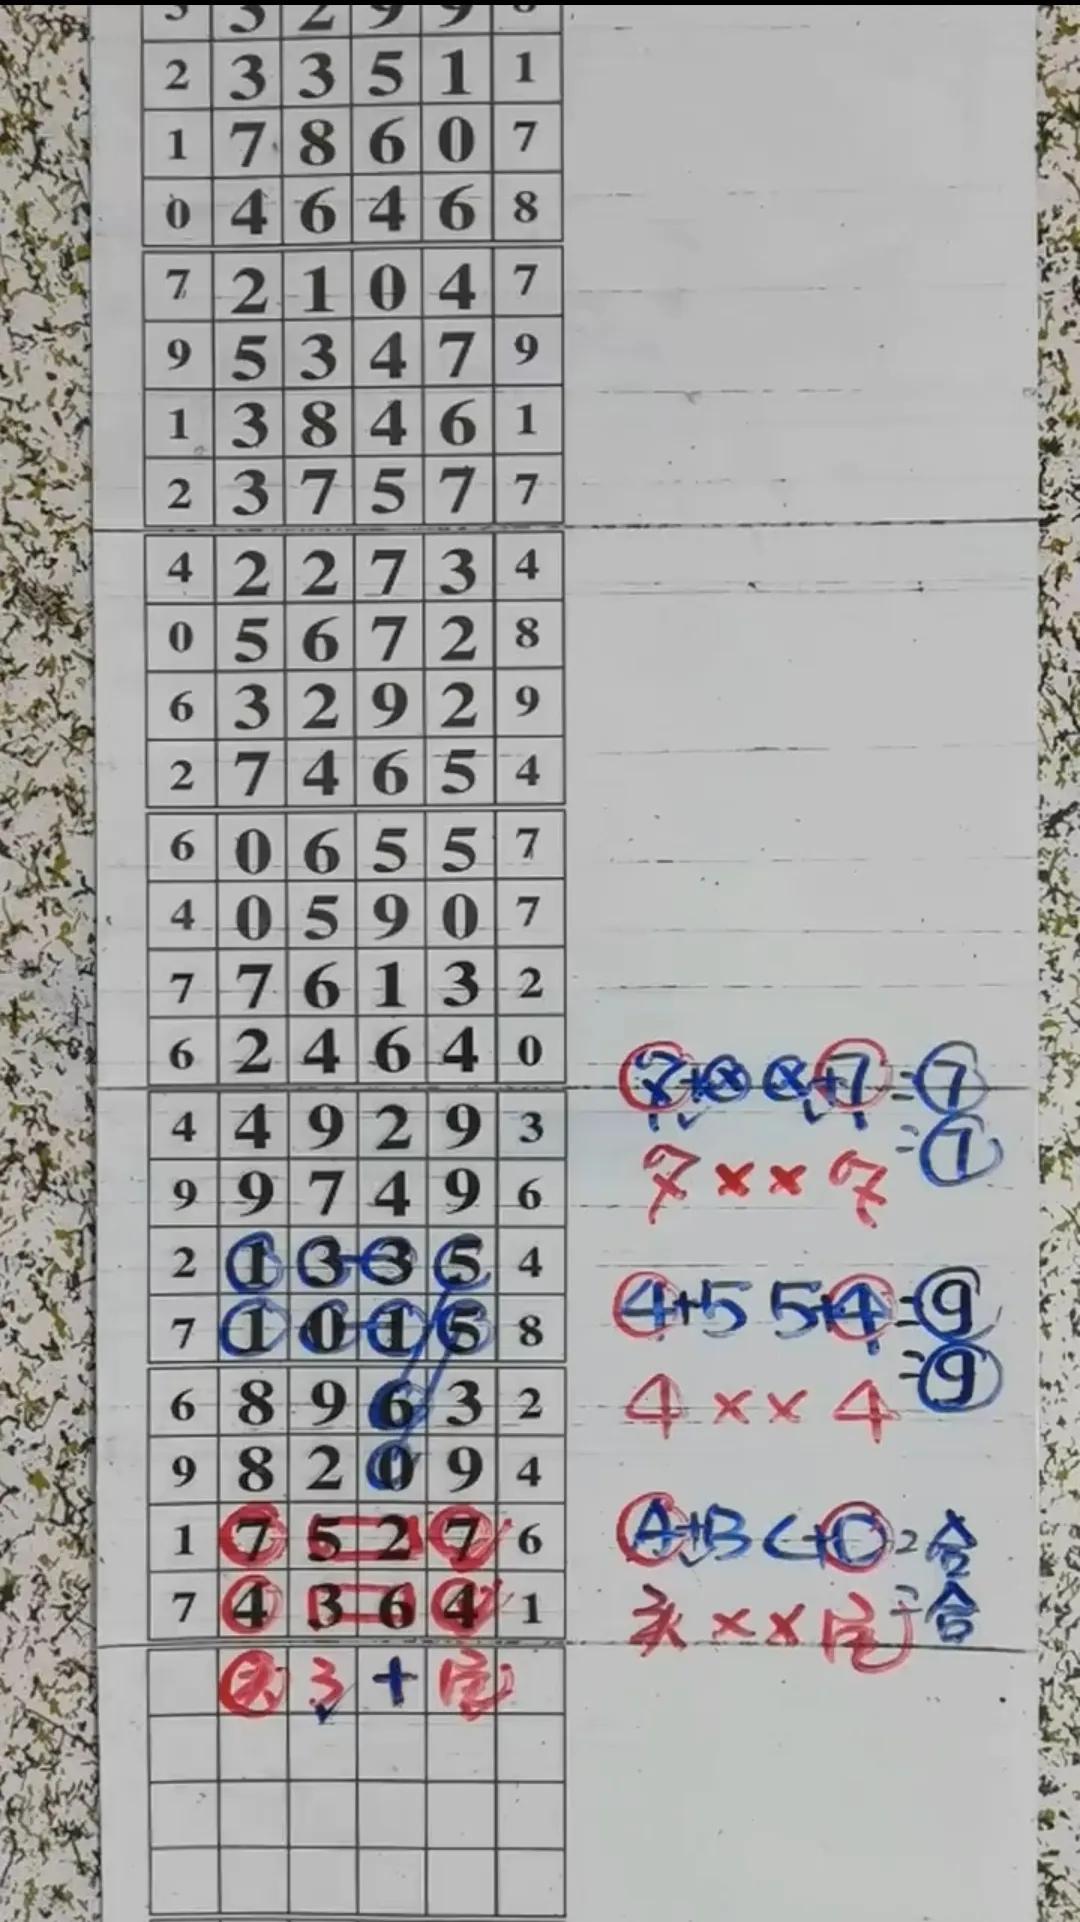 3 3 2 9 9
2 3 3 5 1 1
1 7 8 6 0 7
0 4 6 4 6 8
7 2 1 0 4 7
9 5 3 4 7 9
1 3 8 4 6 1
2 3 7 5 7 7
4 2 2 7 3 4
0 5 6 7 2 8
6 3 2 9 2 9
2 7 4 6 5 4
6 0 6 5 5 7
4 0 5 9 0 7
7 7 6 1 3 2
6 2 4 6 4 0
4 4 9 2 9 3
9 9 7 4 9 6
2 1 3 3 5 4
7 1 0 1 5 8
6 8 9 6 3 2
9 8 2 0 9 4
1 7 5 2 7 6
7 4 3 6 4 1
头 3 + 尾
=7
=7
7 × × 7
4+5 5+4=9
=9
4 × × 4
A+B C+D=合
头 × × 尾=合